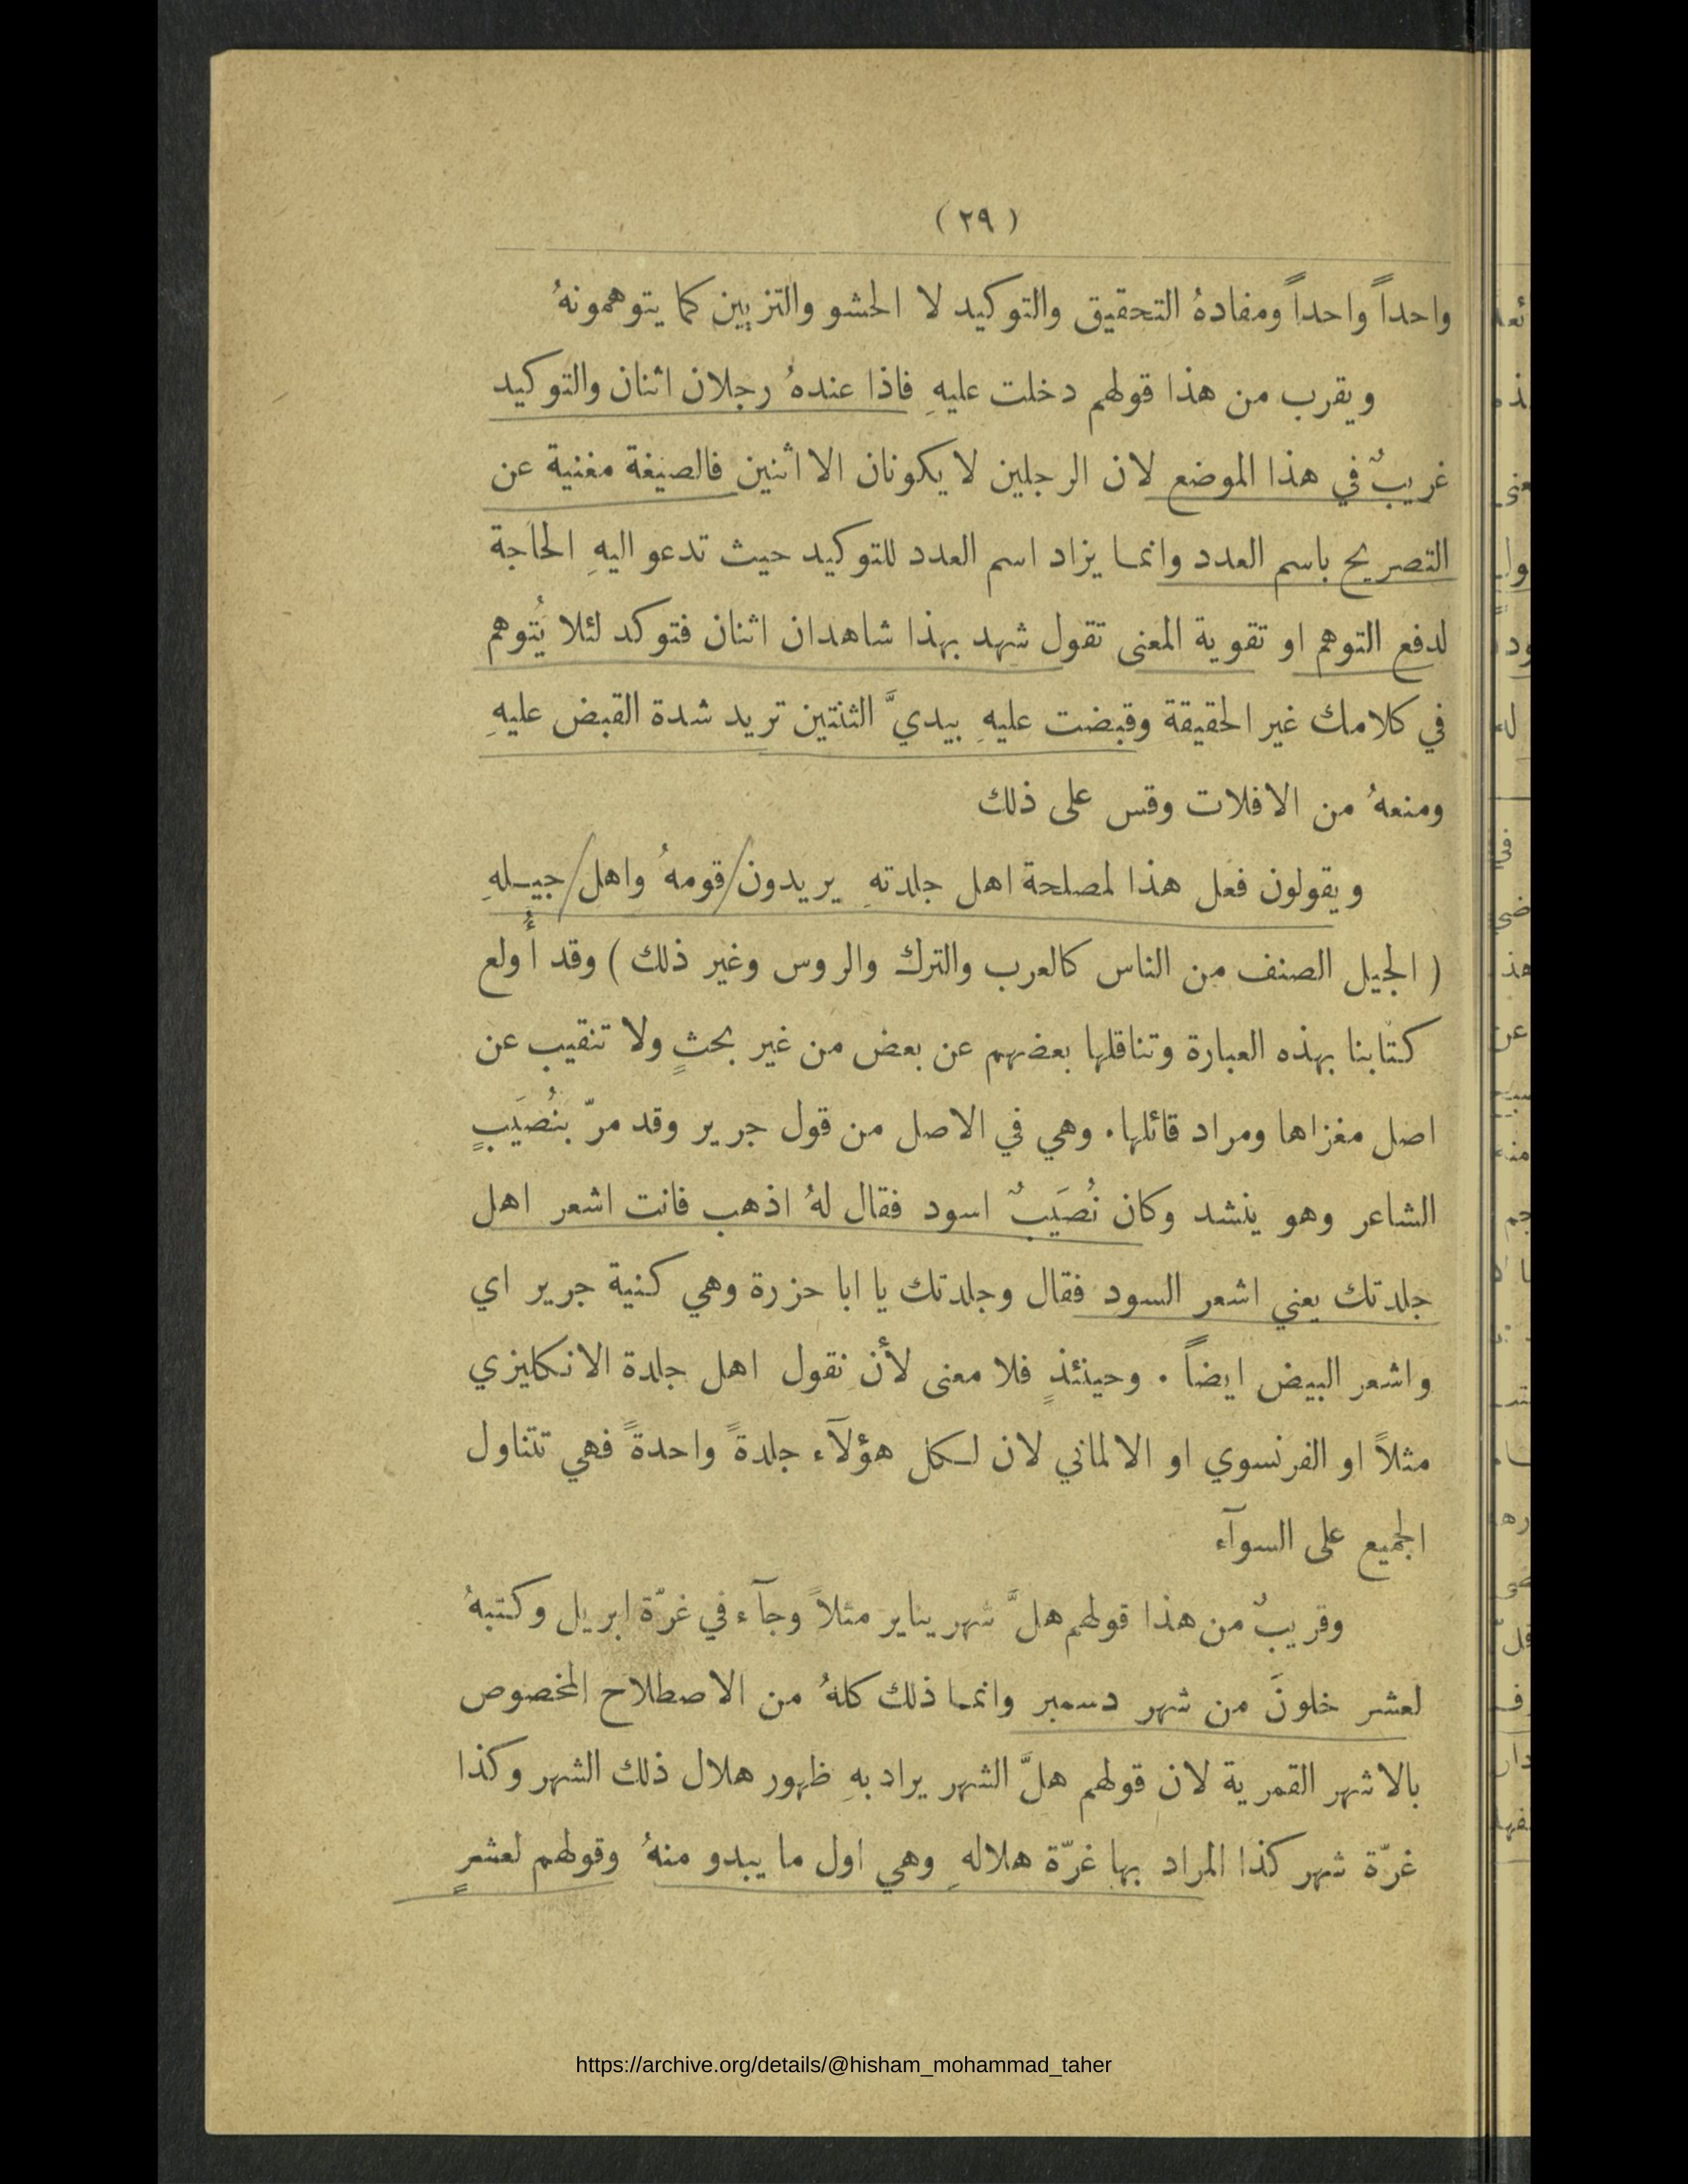 ( ٢٩ )
واحداً واحداً ومفادهُ التحقيق والتوكيد لا الحشو والتزيين كما يتوهمونهُ
ويقرب من هذا قولهم دخلت عليهِ فاذا عندهُ رجلان اثنان والتوكيد
غريبٌ في هذا الموضع لان الرجلين لا يكونان الا اثنين فالصيغة مغنية عن
التصريح باسم العدد وانما يزاد اسم العدد للتوكيد حيث تدعو اليهِ الحاجة
لدفع التوهم او تقوية المعنى تقول شهد بهذا شاهدان اثنان فتوكد لئلا يُتوهم
في كلامك غير الحقيقة وقبضت عليهِ بيديَّ الثنتين تريد شدة القبض عليهِ
ومنعهُ من الافلات وقس على ذلك
ويقولون فعل هذا لمصلحة اهل جلدتهِ يريدون قومهُ واهل جيــلهِ
( الجيل الصنف من الناس كالعرب والترك والروس وغير ذلك ) وقد أُولع
كتابنا بهذه العبارة وتناقلها بعضهم عن بعض من غير بحثٍ ولا تنقيب عن
اصل مغزاها ومراد قائلها . وهي في الاصل من قول جرير وقد مرّ بنُصَيبٍ
الشاعر وهو ينشد وكان نُصَيبٌ اسود فقال لهُ اذهب فانت اشعر اهل
جلدتك يعني اشعر السود فقال وجلدتك يا ابا حزرة وهي كنية جرير اي
واشعر البيض ايضاً . وحينئذٍ فلا معنى لأن نقول اهل جلدة الانكليزي
مثلاً او الفرنسوي او الالماني لان لــكل هؤلآء جلدةً واحدةً فهي تتناول
الجميع على السوآء
وقريبٌ من هذا قولهم هلَّ شهر يناير مثلاً وجآء في غرّة ابريل وكتبهُ
لعشر خلونَ من شهر دسمبر وانما ذلك كلهُ من الاصطلاح المخصوص
بالاشهر القمرية لان قولهم هلَّ الشهر يراد بهِ ظهور هلال ذلك الشهر وكذا
غرّة شهر كذا المراد بها غرّة هلالهِ وهي اول ما يبدو منهُ وقولهم لعشرٍ
https://archive.org/details/@hisham_mohammad_taher